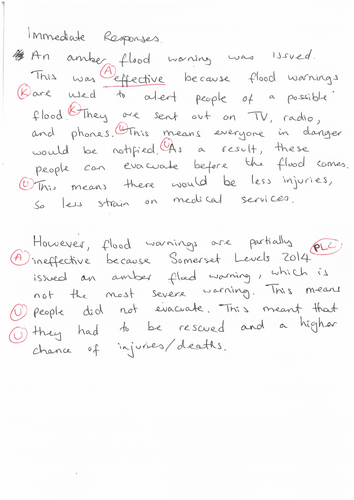 Immediate Responses.
An amber flood warning was issued.
This was (A) effective because flood warnings
(K) are used to alert people of a possible
flood. (K) They are sent out on TV, radio,
and phones. (U) This means everyone in danger
would be notified. (U) As a result, these
people can evacuate before the flood comes.
(U) This means there would be less injuries,
so less strain on medical services.
However, flood warnings are partially PLC
(A) ineffective because Somerset Levels 2014
issued an amber flood warning, which is
not the most severe warning. This means
(U) people did not evacuate. This meant that
(U) they had to be rescued and a higher
chance of injuries/deaths.